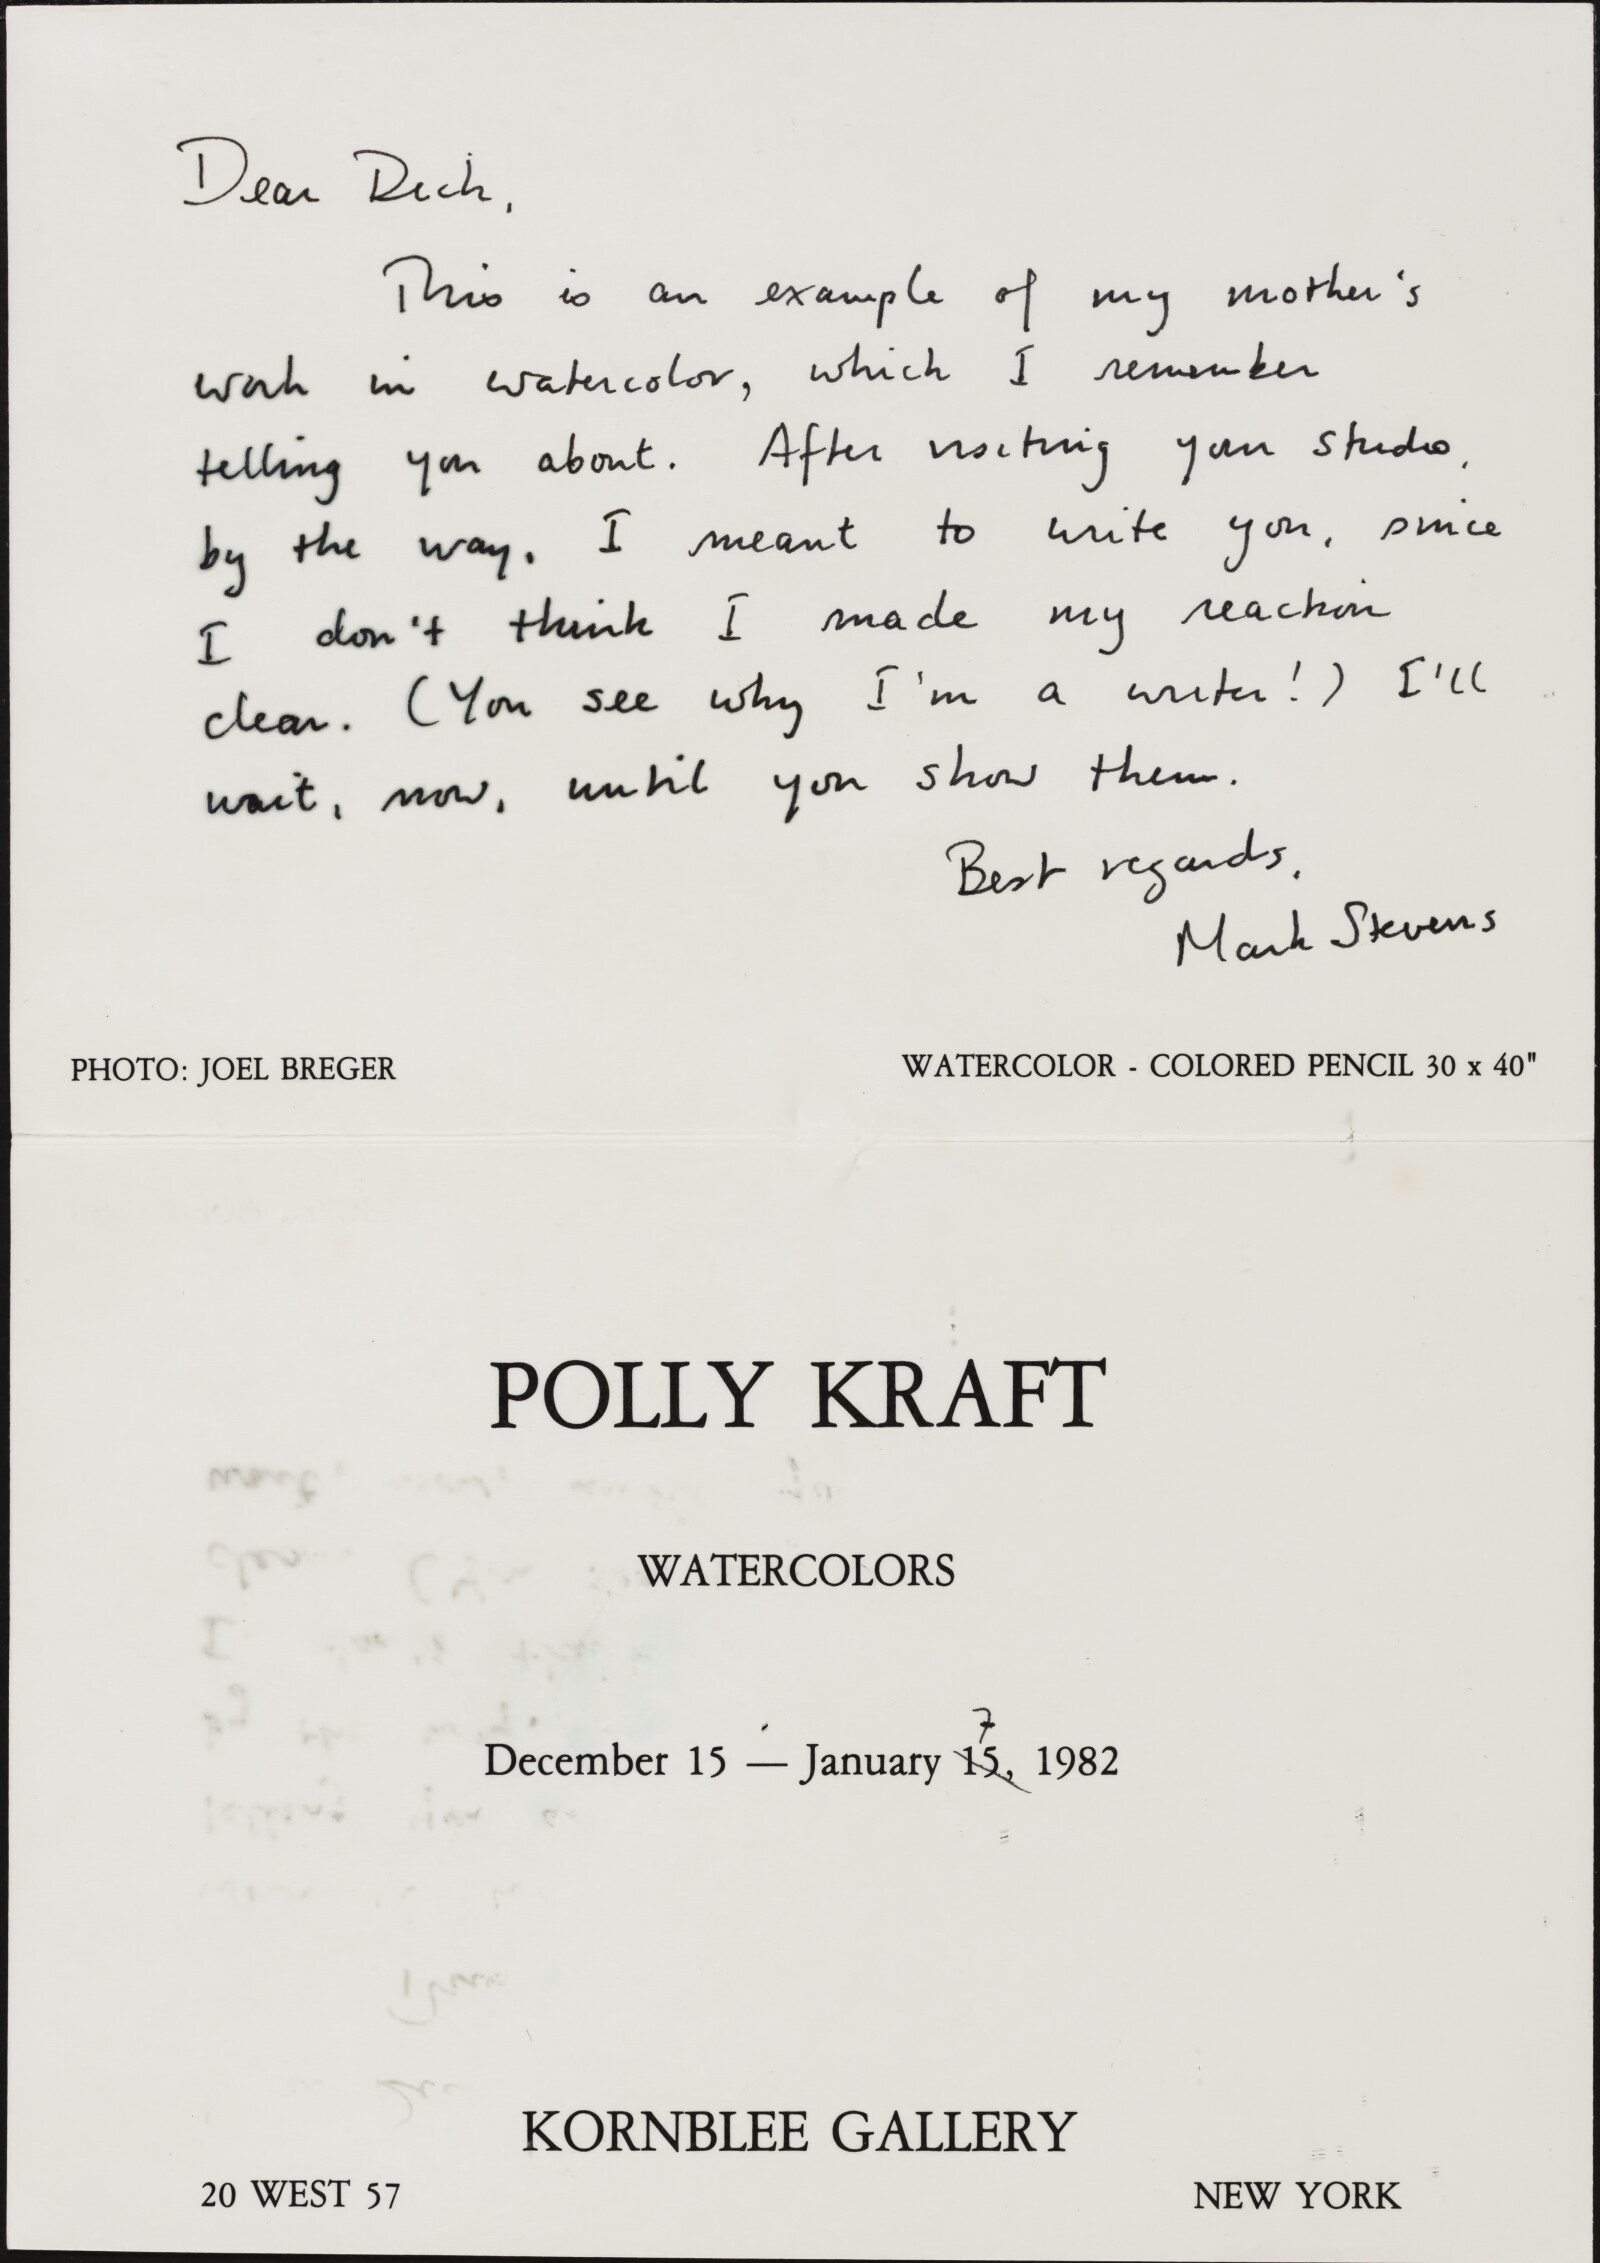 Dear Dick,
This is an example of my mother's
work in watercolor, which I remember
telling you about. After visiting your studio,
by the way, I meant to write you, since
I don't think I made my reaction
clear. (You see why I'm a writer!) I'll
wait, now, until you show them.
Best regards,
Mark Stevens
PHOTO: JOEL BREGER
WATERCOLOR - COLORED PENCIL 30 x 40"
POLLY KRAFT
WATERCOLORS
7
December 15 — January 15, 1982
KORNBLEE GALLERY
20 WEST 57
NEW YORK